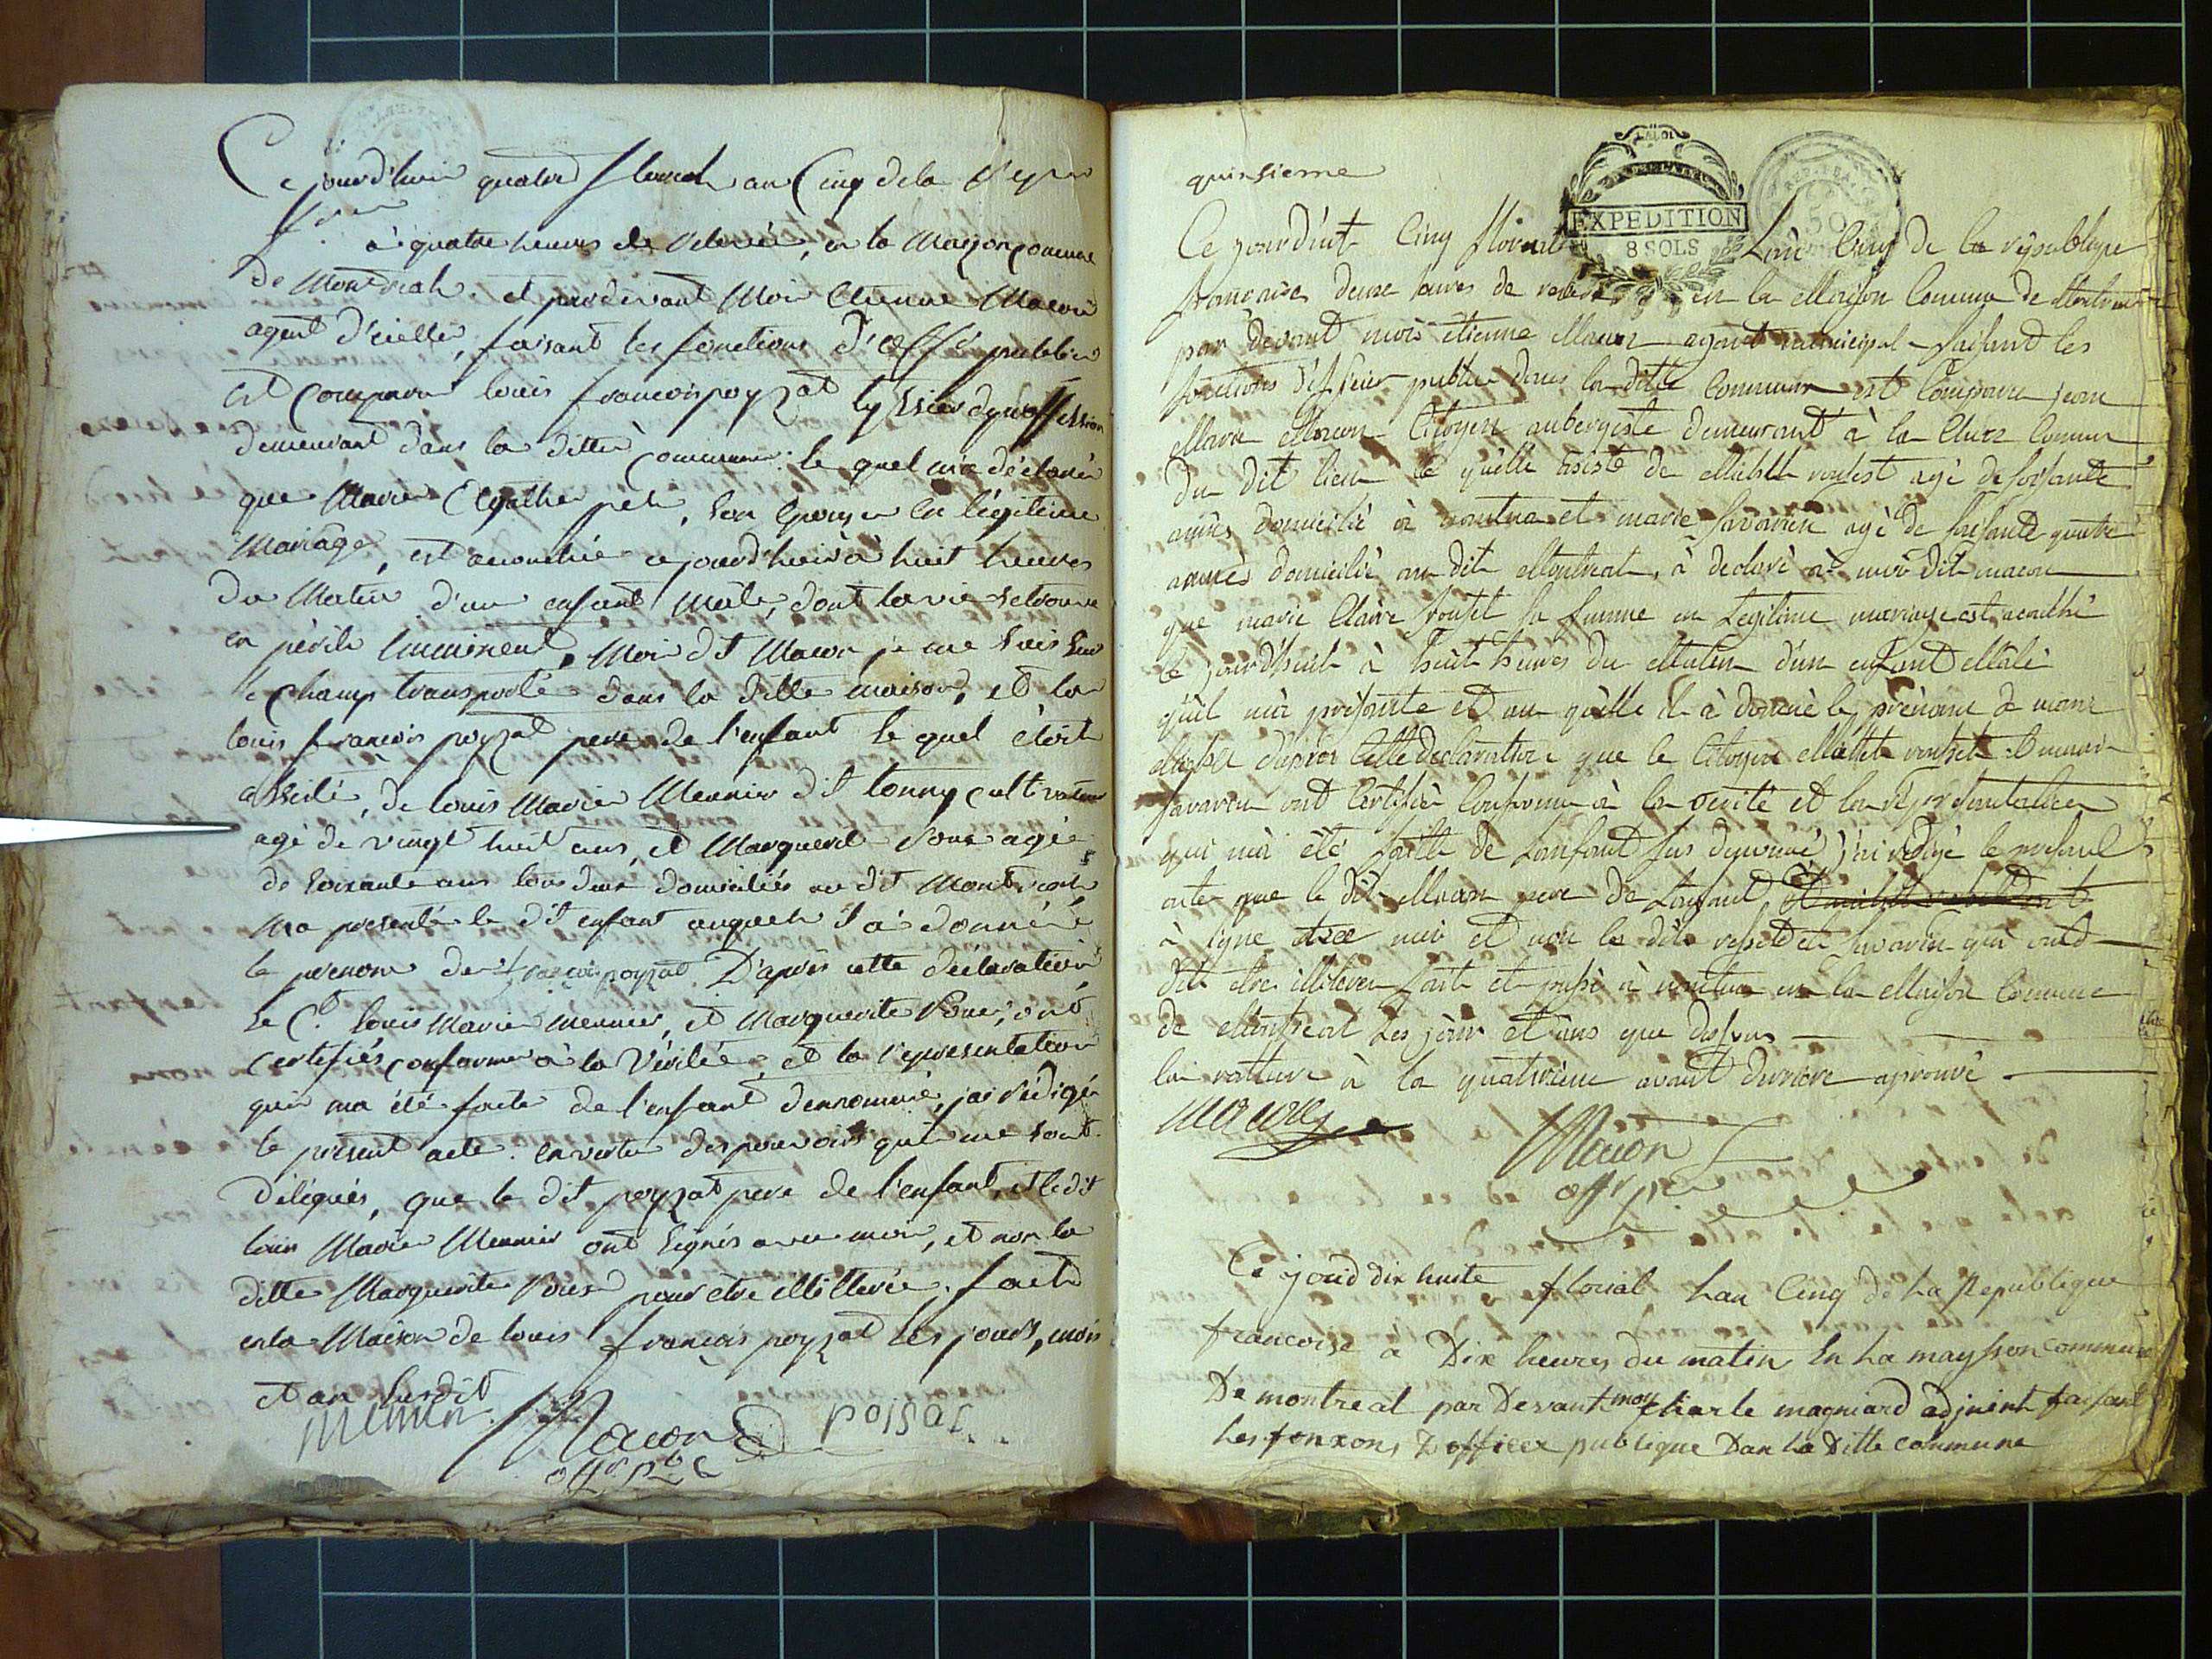 Ce jourd'huis quatre floreal an Cinq de la Repu
fran
à quatre heures de relevée, en la Maison commune
de Montreal. et pardevant Moi Etienne Macon
agent d'icelle, faisant les fonctions d'off.er public
est comparu louis françois poyzat tyssier de proffession
demeurant dans la ditte commune: le quel m'a déclaré
que Marie Agathe, son Epouse en légitime
Mariage, est accouchée ce jourd'huis à huit heures
du Matin d'un enfant Mâle, dont la vie se trouve
en périls imminent, Moi dt Macon je me suis sur
le Champ transporté dans la ditte maison, et la
louis françois poyzat pere de l'enfant le quel étoit
assisté, de louis Marie Meunier dit tonny cultivateur
agé de vingt huit ans, et Marguerite agée
de soixante ans tous deux domiciliés au dit Montreal
m'a presenté le dit enfant auquel il a donné
le prenom de françois poyzat. D'après cette déclaration
le C.t louis Marie meunier, et Marguerite ont
certifiés conforme à la Vérité, et la représentation
qui m'a été faite de l'enfant dennommé, j'ai rédigé
le présent acte. en vertu des pouvoirs qui me sont
délégués, que le dit poyzat pere de l'enfant, et le dit
louis Marie Meunier ont signés avec moi, et non la
ditte Marguerite pour être illitterée. fait
en la Maison de louis françois poyzat les jours, mois
et an susdit
Macon poisat
off. p.
quinsieme
LA LOI
EXPEDITION
8 SOLS
REP. FRA.
50
Ce jourd'uit Cinq floreal Lan Cinq de la république
française, deux heures de relevée en la Maison Comune de Montreal
par devant moi étienne Macon agant municipal faisant les
fonctions d'officier public dans la ditte Commune est Comparu jean
Marie Macon Citoyen aubergiste demeurant à la Cluze Comune
du dit lieu le quelle asisté de rouset agé de soisante
années domicilié à nantua et marie savarin agé de soisante quatre
années domicilié au dit Montreal, à declaré à moi dit macon
que marie Claire rouset sa femme en Legitime mariage est acouchée
ce jourd'huit à huit heures du Matin d'un enfant Mâle
qu'il m'a présenté et au quelle il à donné le prénom de
d'après Cette declaration que le Citoyen rouset et marie
savarin ont Certifié Conforme à la verité et la représentation
qui m'à été faitte de Lanfant sus denomé j'ai rédigé le présent
acte que le dit Macon pere de Lanfant
à signé avec moi et non les dits rouset et savarin qui ont
dit etre illiteré fait et passé à nantua en la Maison Comune
de Montreal Les jour et ans que desus
la rature à la quatrieme avant derniere aprouvé
macon
Macon
off.r p.
Ce jourd dix huite florial Lan Cinq de La Republique
francoise a Dix heures du matin En La maysson commune
De montreal par Devant moy Charle magniard adjoint faisant
Les fonxons D officer publique Dan La Ditte commune